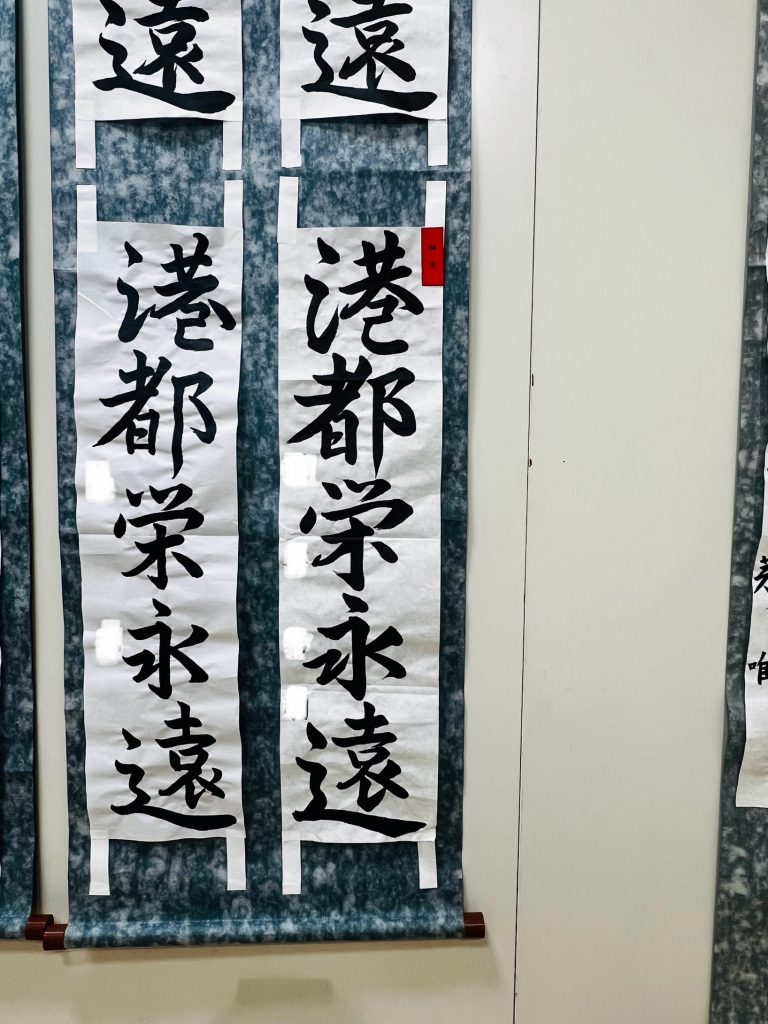 遠
遠
港都栄永遠
港都栄永遠
唯